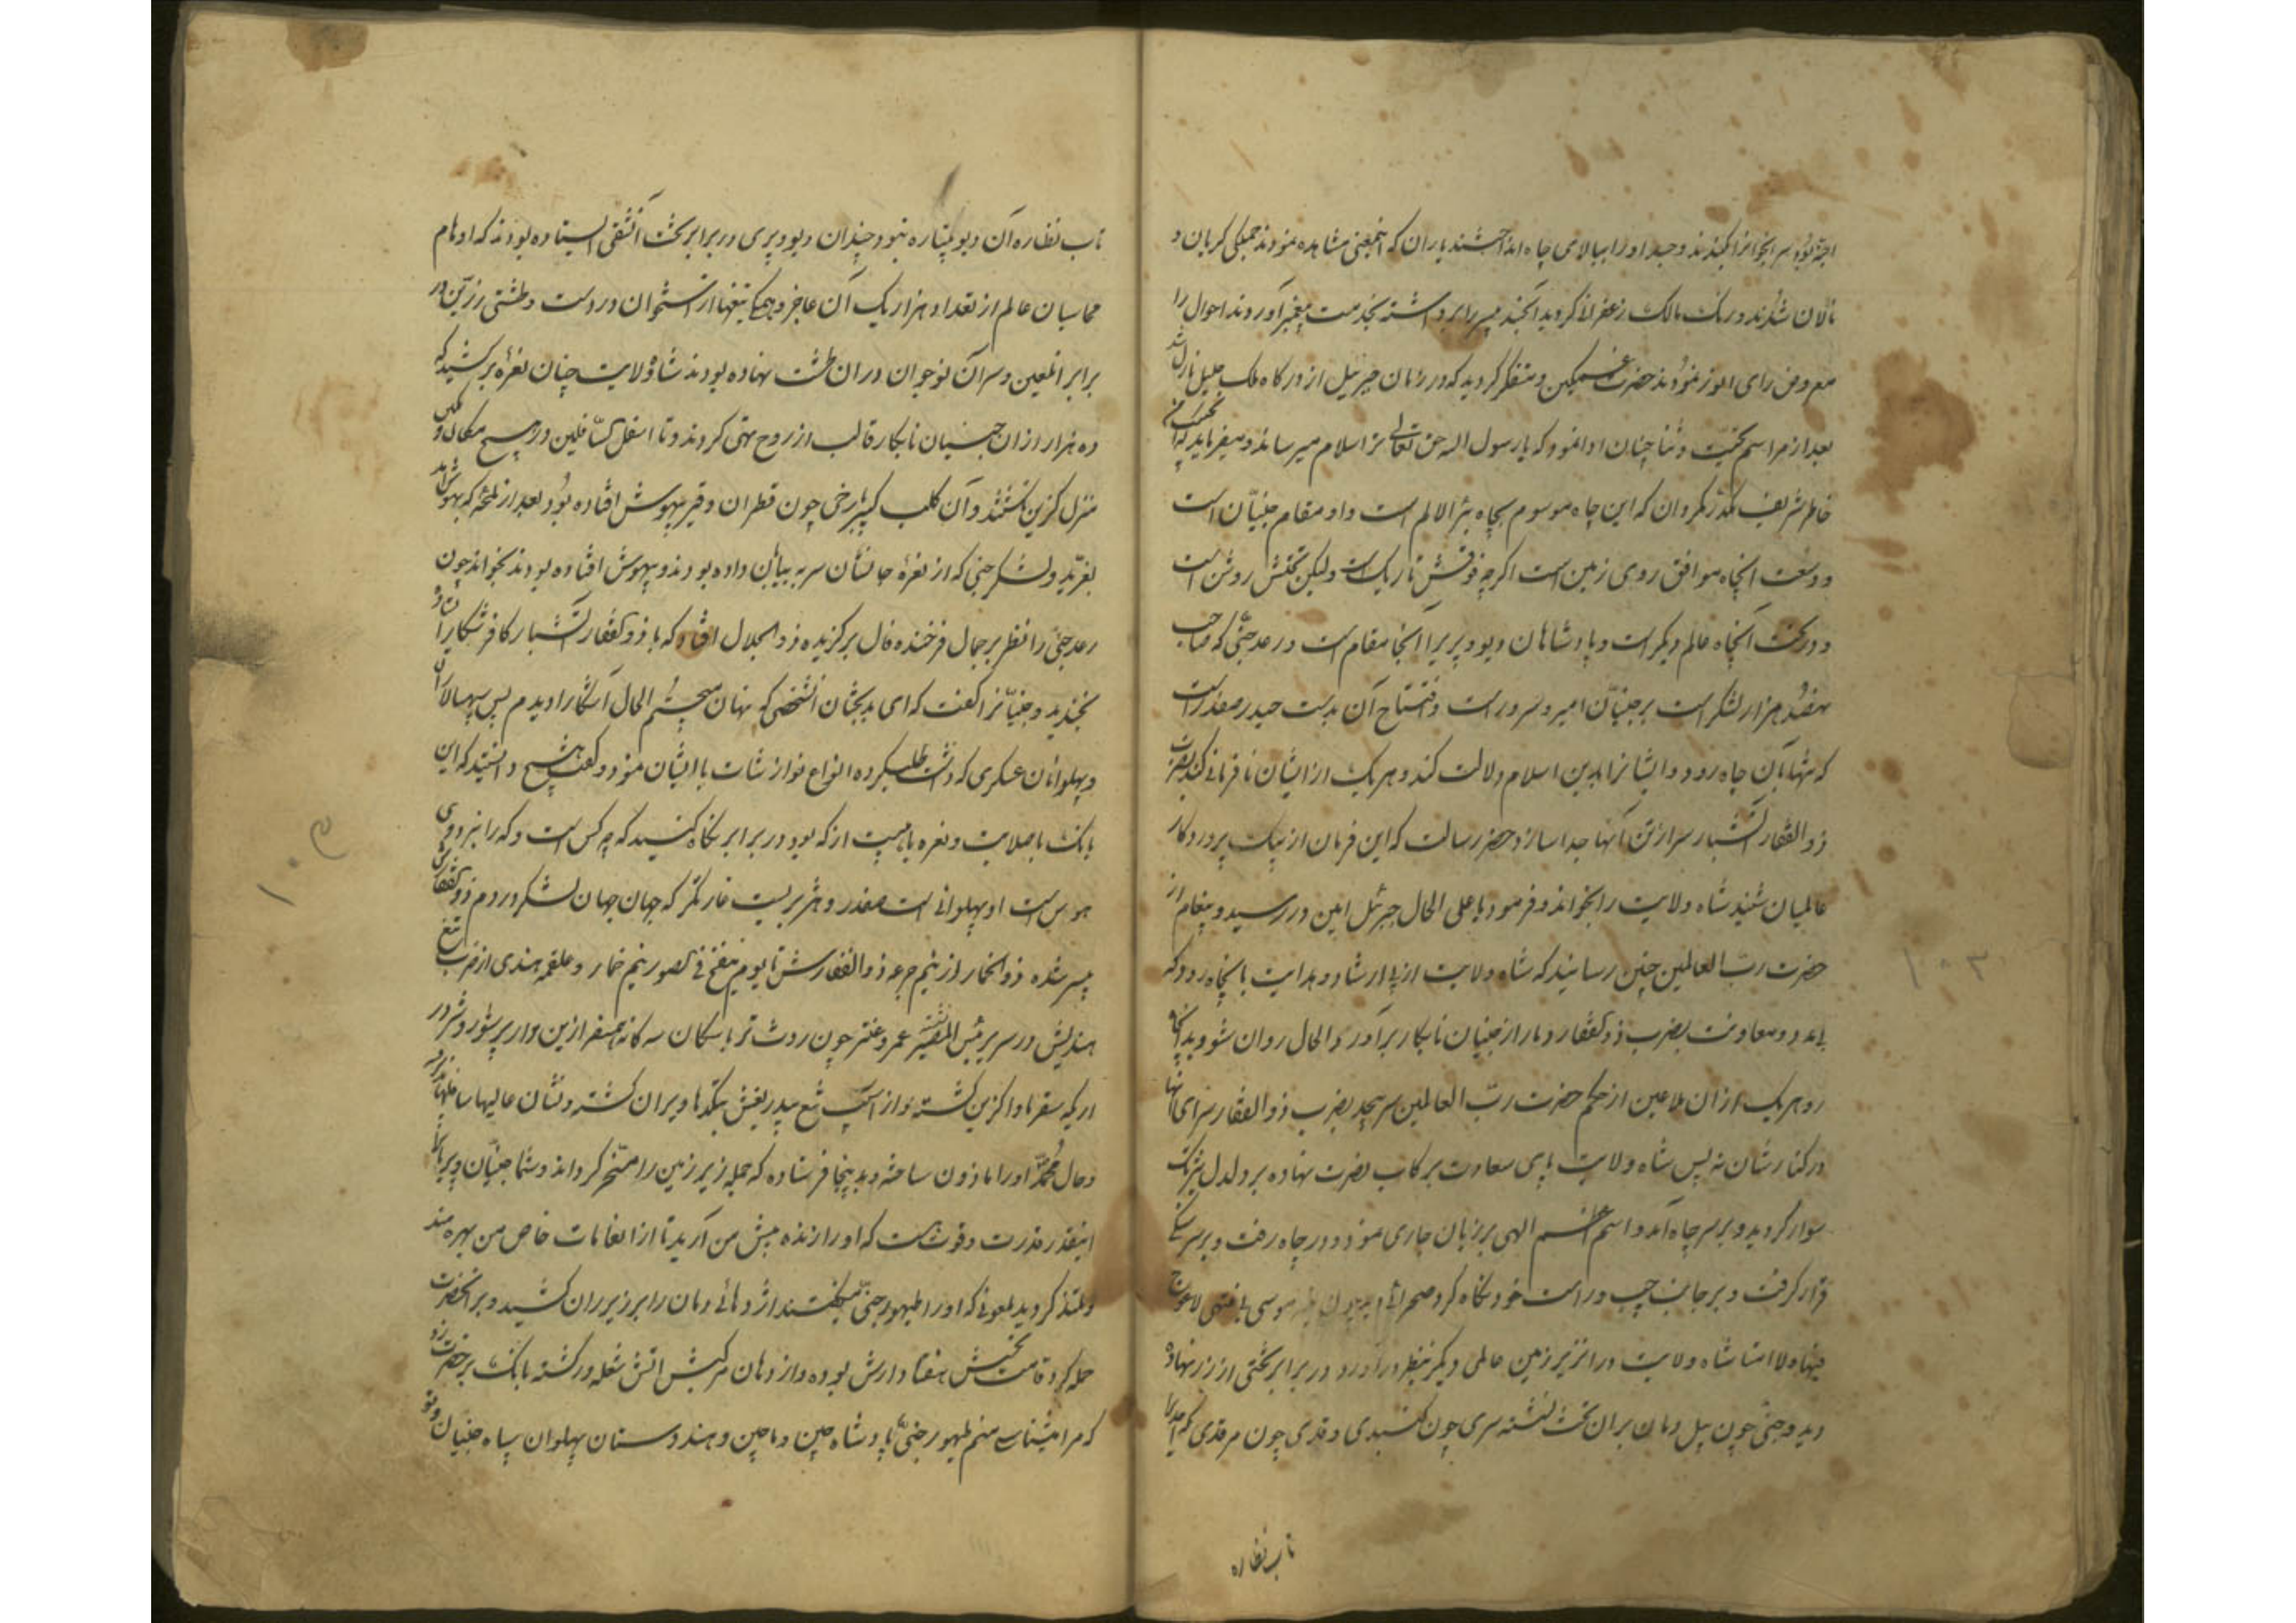 نالان شدند و ریک مالک زعفر لاکردید
معروض رای انور نمودند حضرت غمکین و متفکر کردید که در زمان جبرئیل از درکاه ملک جلیل نازل شد
بعد از مراسم تحیت و ثنا چنان ادا نمود که یا رسول الله حق تعالی ترا سلام میرساند و میفرماید که
خاطر شریف مکدر مکردان که این چاه موسوم بچاه بئر الالم است و او مقام جنیان است
و وسعت انچاه موافق روی زمین است اکرچه فوقش تاریک است ولیکن تحتش روشن است
و در تحت انچاه عالم دیکر است و پادشاهان دیو و پریرا انجا مقام است و رعد جنی که صاحب
هفتصد هزار لشکر است بر جنیان امیر و سرور است و فتح آن بدست حیدر صفدر است
که تنها بآن چاه رود و ایشانرا بدین اسلام دلالت کند و هر یک از ایشان نافرمانی کند بضرب
ذوالفقار آتشبار سر از تن آنها جدا سازد حضرت رسالت که این فرمان از پیک پروردکار
عالمیان شنید شاه ولایت را بخواند و فرمود یا علی الحال جبرئیل امین در رسید و پیغام از
حضرت رب العالمین چنین رسانید که شاه ولایت از پی ارشاد و هدایت بانچاه رود که
بی مدد و معاونت بضرب ذوالفقار دمار از جنیان نابکار برآورد الحال روان شو و بدانجا
رو هر یک از ان ملاعین از حکم حضرت رب العالمین سر پیچد بضرب ذوالفقار سرهای آنها
در کنارشان نه پس شاه ولایت پای سعادت برکاب نصرت نهاده بر دلدل
سوار کردید و بر سر چاه آمد و اسم اعظم الهی بر زبان جاری نمود و در چاه رفت و بر سر سنکی
قرار کرفت و بر جانب چپ و راست خود نکاه کرد صحرائی
شاه ولایت در زیر زمین عالمی دیکر بنظر درآورد و در برابر تختی از زر نهاده
دید و جنی چون پیل دمان بران تخت نشسته سری چون کنبدی و قدی چون مرقدی که احدیرا
تاب نظاره
تاب نظاره آن دیو پتیاره نبود چندان دیو و پری در برابر تخت آنشقی ایستاده بودند که اوهام
محاسبان عالم از تعداد هزار یک آن عاجز و همکی تیغها از استخوان در دست و طشتی زرین در
برابر انلعین و سر آن نوجوان دران طشت نهاده بودند شاه ولایت چنان نعره برکشید که
ده هزار از ان جنیان نابکار قالب از روح تهی کردند و تا اسفل السافلین در هیچ مکان
منزل کزین نکشتند و آن کلب کبیر با رخی چون قطران و قیر بیهوش افتاده بود بعد از لمحه که بهوش آمد
بغرید و لشکر جنی که از نعره جانشان سر به بیابان داده بودند و بیهوش افتاده بودند بخواند چون
رعد جنی را نظر بر جمال فرخنده فال برکزیده ذوالجلال افتاد که با ذوالفقار آتشبار کافر شکار
بخندید و جنیانرا کفت که ای بدبختان آنشخصی که نهان میجستم الحال آشکارا دیدم پس سپهسالاران
و پهلوانان عسکری که داشت طلب کرده انواع نوازشات با ایشان نمود و کفت هیچ دانستید که این
بانک با صلابت و نعره با مهیبت از که بود در برابر نکاه کنید که چه کس است و که را نبرد وی
هوس است او پهلوانی است صفدر و هژبریست غارتکر که جهان جهان لشکر در دم ذوالفقارش
پسر شده ذوالخمار از نیم جرعه ذوالفقارش تا یوم ینفخ فی الصور نیم خمار و علقمه هندی از ضرب تیغ
هندیش در سریر بئس المصیر عمرو عنتر چون روث تر با سکان سه کانه همسفر ازین دار پر شور و شر در
اریکه سقر ماوا کزین کشته و از آسیب تیغ بیدریغش بتکدها ویران کشته و نشان عالیها سافلها
و حال محمد اورا ماذون ساخته و بدینجا فرستاده که جمله زیر زمین را مسخر کرداند و شما جنیان و پریانرا
اینقدر قدرت و قوت هست که اورا زنده پیش من آرید تا از انعامات خاص من بهره مند
و ملتذ کردید ملعونی که اورا طیهور جنی میکفتند اژدهائی دمان را بر زیر ران کشید و بر انحضرت
حمله کرد قامتش هفتاد ارش بوده و از دهان مرکبش آتش شعله ور کشته بانک بر حضرت زد
که مرا میشناسی منم طیهور جنی پادشاه چین و ماچین و هندوستان پهلوان سپاه جنیان
۱۰۳